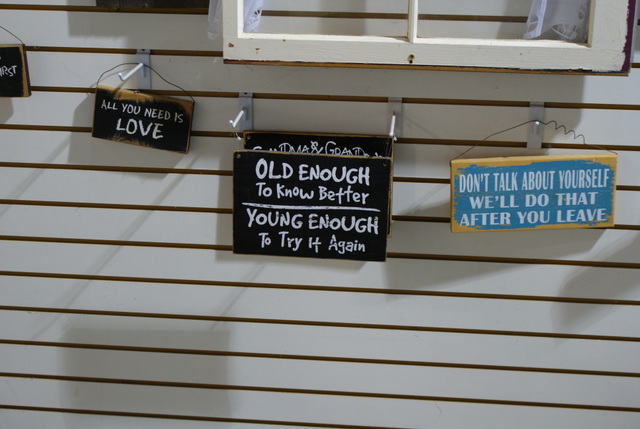 ALL YOU NEED IS
LOVE
OLD ENOUGH
To Know Better
YOUNG ENOUGH
To Try It Again
DON'T TALK ABOUT YOURSELF
WE'LL DO THAT
AFTER YOU LEAVE